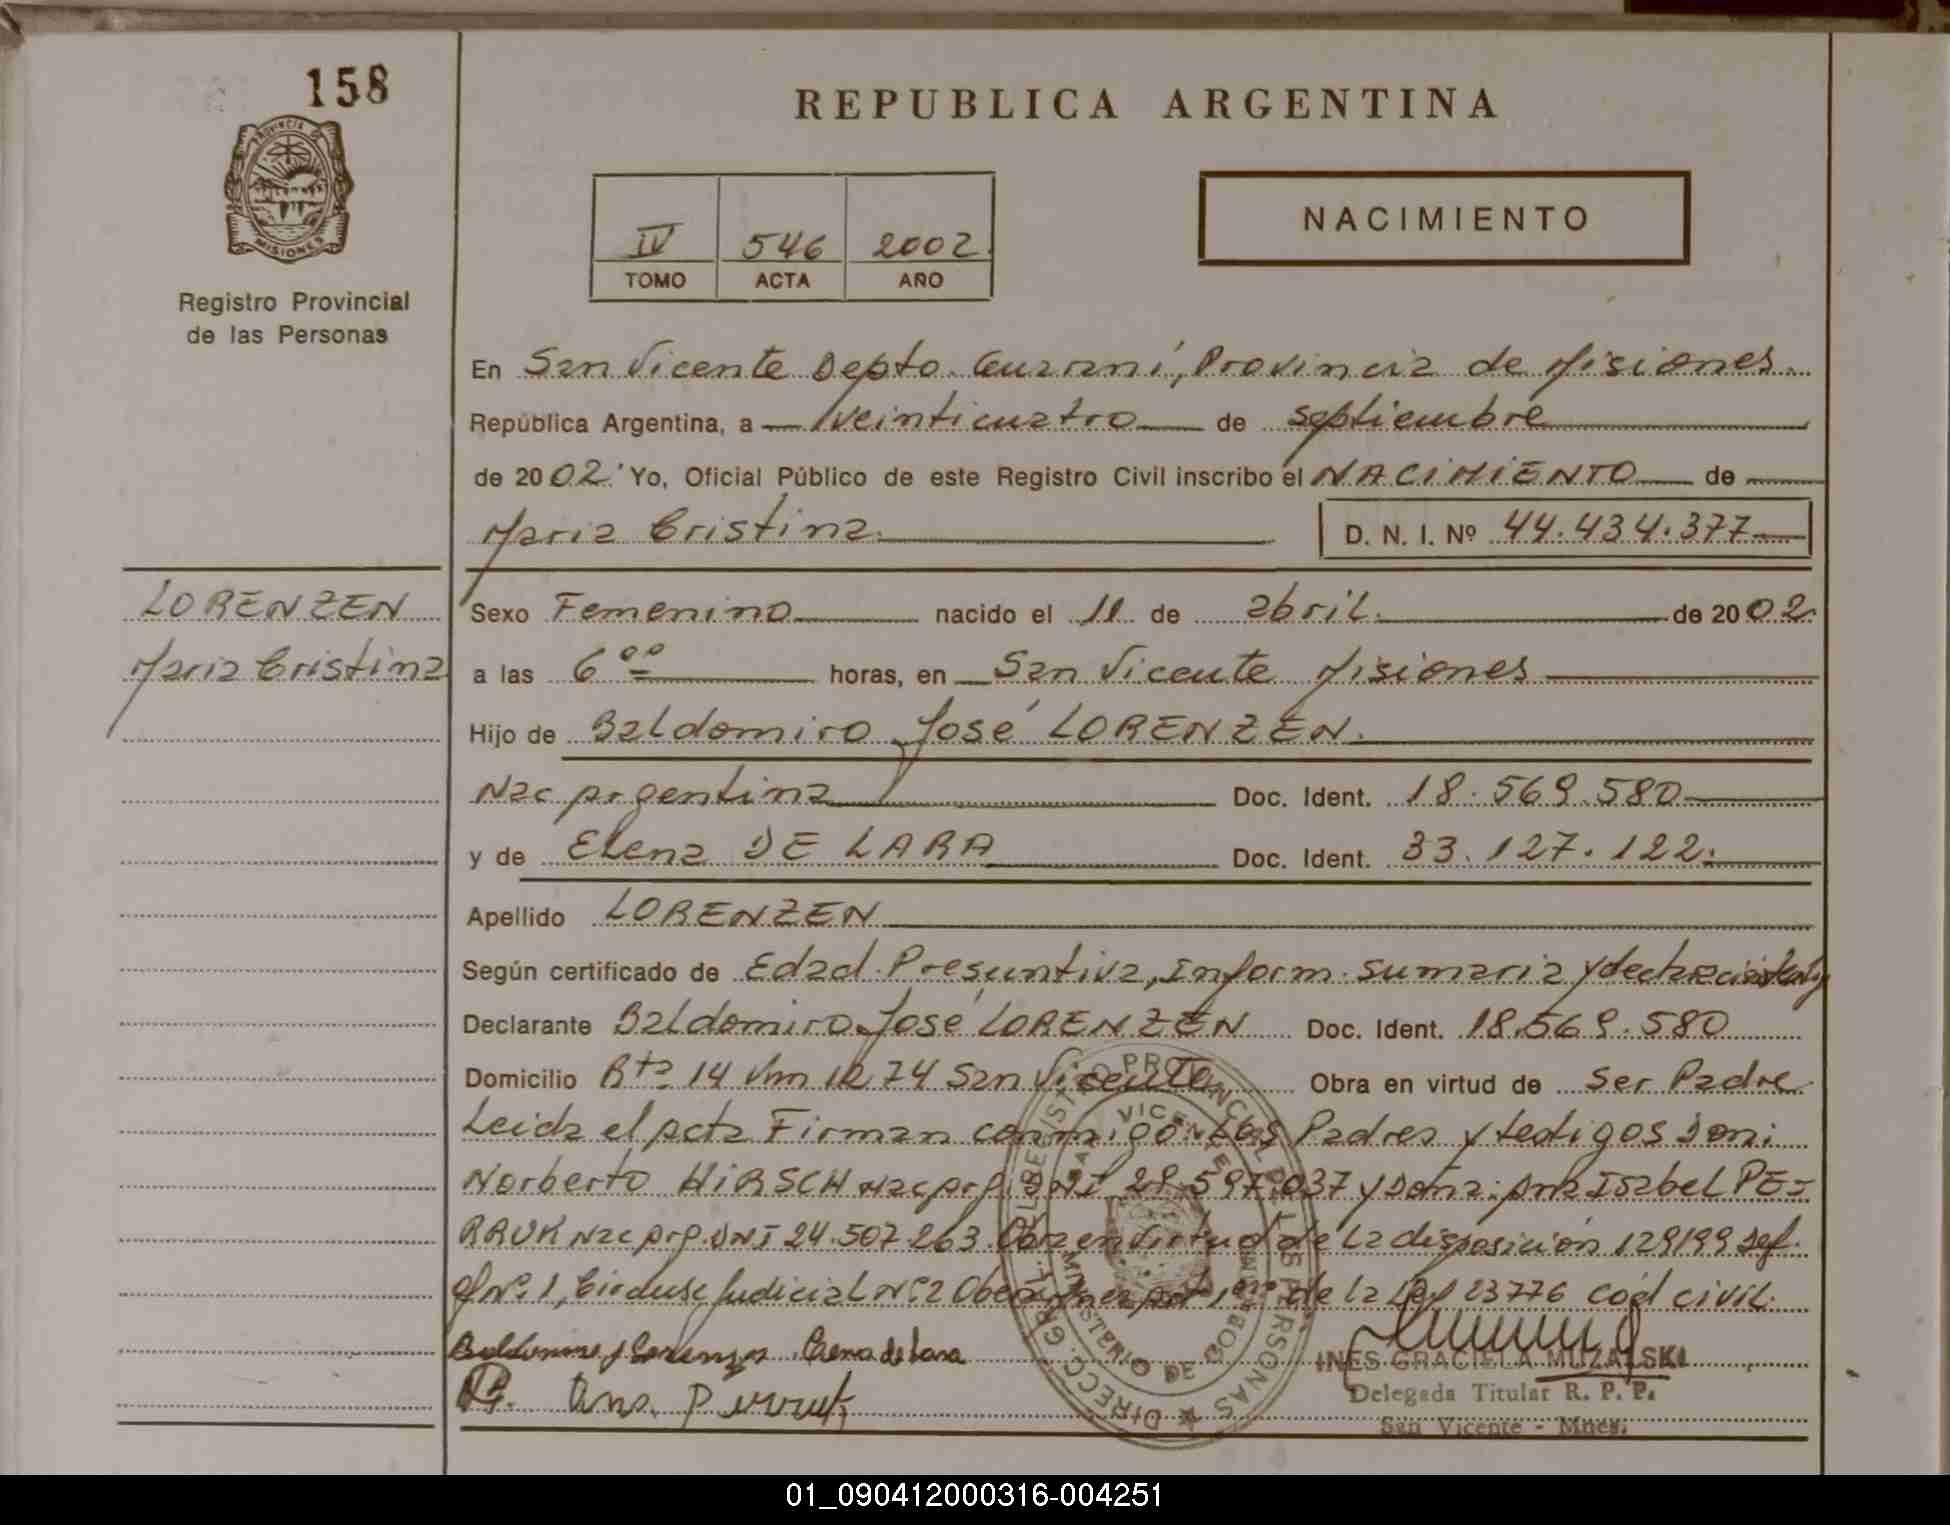 158
PROVINCIA DE
MISIONES
Registro Provincial
de las Personas
REPUBLICA ARGENTINA
IV 546 2002.
TOMO ACTA AÑO
NACIMIENTO
En San Vicente Depto. Guaraní, Provincia de Misiones.
República Argentina, a veinticuatro de septiembre
de 2002. Yo, Oficial Público de este Registro Civil inscribo el NACIMIENTO de
Maria Cristina. D. N. I. Nº 44.434.377
LORENZEN
Maria Cristina
Sexo Femenino nacido el 11 de abril. de 2002.
a las 6 ºº horas, en San Vicente Misiones
Hijo de Baldomiro José LORENZEN.
Nac Argentina Doc. Ident. 18.569.580
y de Elena DE LARA Doc. Ident. 33.127.122.
Apellido LORENZEN
Según certificado de Edad Presuntiva, Inform. sumaria y
Declarante Baldomiro José LORENZEN Doc. Ident. 18.569.580
Domicilio Rta 14 Km San Vicente Obra en virtud de ser Padre.
Leida el Acta Firman conmigo los Padres y testigos Don:
Norberto HIRSCH Nac Arg. DNI 597.037 y Doña: Ana Isabel PE-
RRUK Nac Arg. DNI 24.507.263. Obra en virtud de la disposición 129/99 Def.
Of Nº 1, Judicial Nº 2 de la Ley 23776 cod civil.
Elena de Lara
Ana. Perruk
DIRECC. GRAL. DEL REGISTRO PROVINCIAL DE LAS PERSONAS
SAN VICENTE
MINISTERIO DE GOBIERNO
INES GRACIELA MUZALSKI
Delegada Titular R. P. P.
San Vicente - Mnes.
01_090412000316-004251